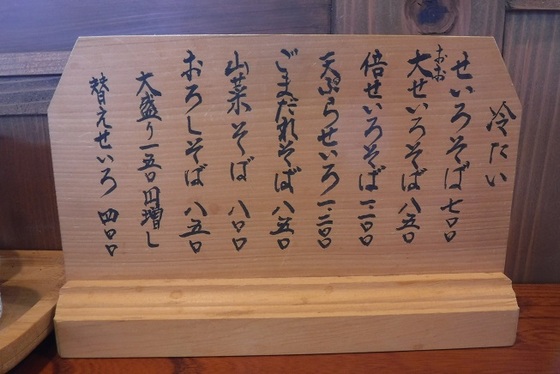 冷たい
せいろそば 七〇〇
おお
大せいろそば 八五〇
倍せいろそば 一一〇〇
天ぷらせいろ 一二〇〇
ごまだれそば 八五〇
山菜そば 八〇〇
おろしそば 八五〇
大盛り 一五〇円増し
替えせいろ 四〇〇